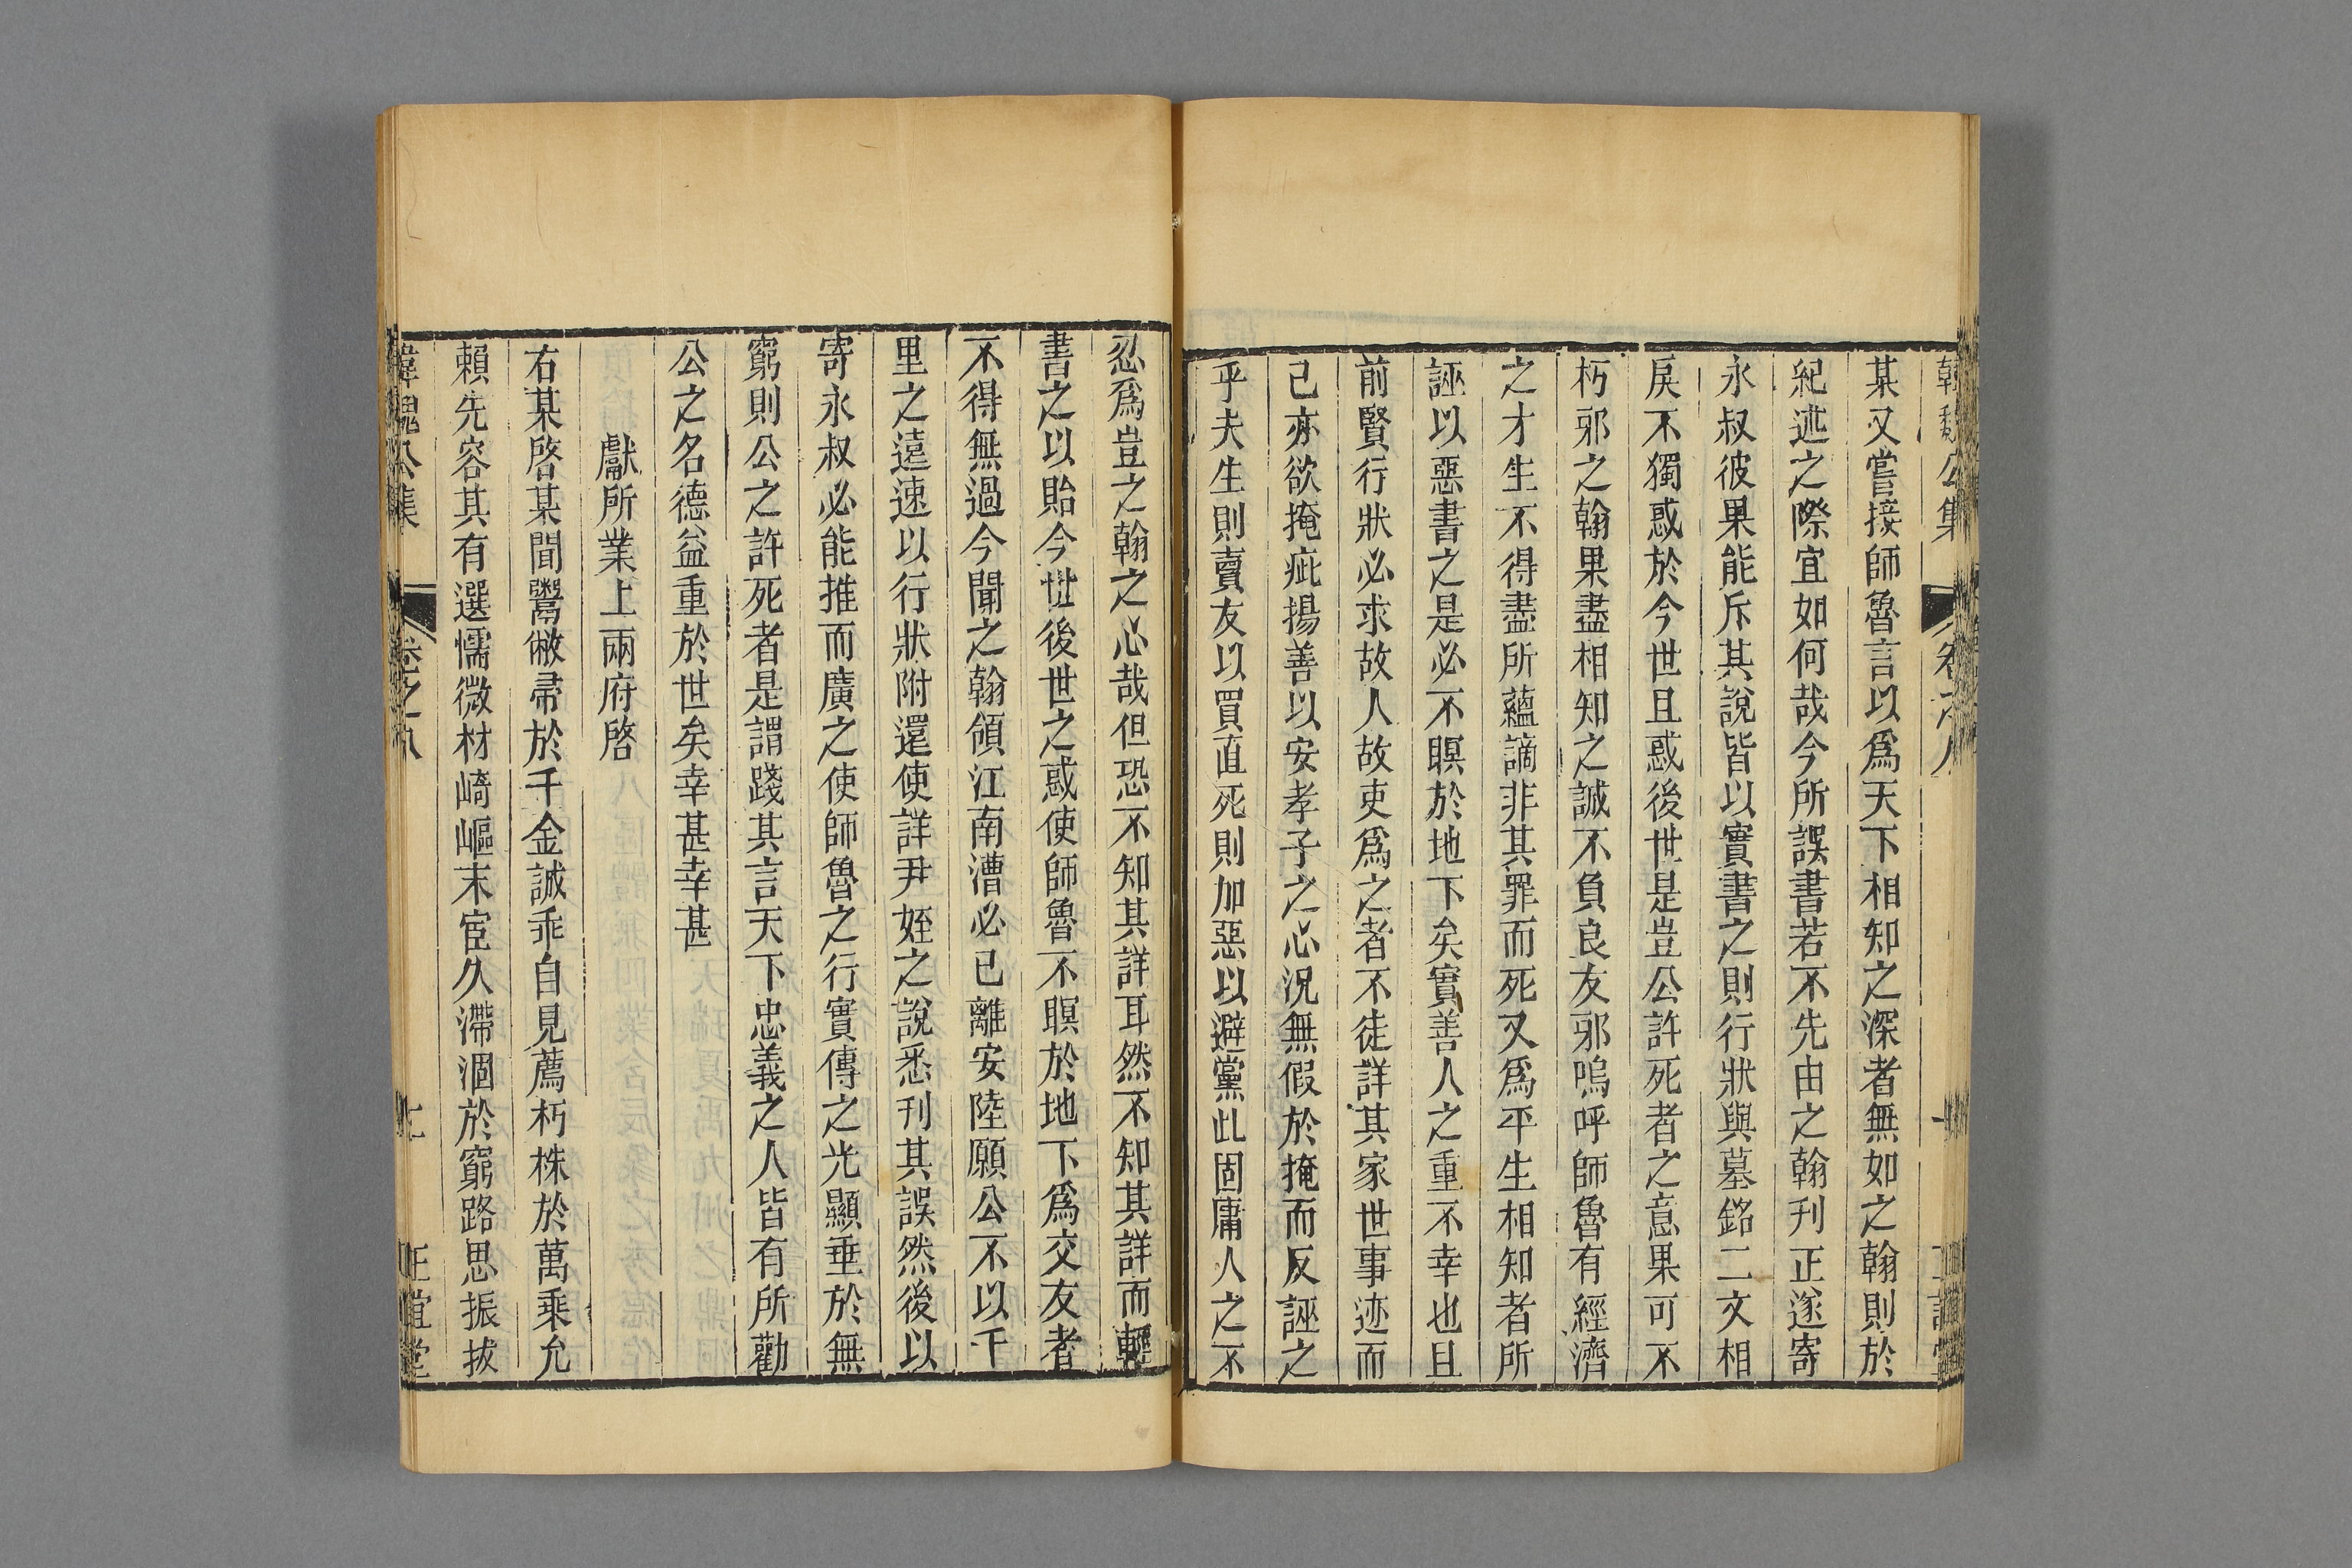 韓魏公集 卷之八 十 正誼堂
某又嘗接師魯言以爲天下相知之深者無如之翰則於
紀述之際宜如何哉今所誤書若不先由之翰刋正遂寄
永叔彼果能斥其說皆以實書之則行狀與墓銘二文相
戾不獨惑於今世且惑後世是豈公許死者之意果可不
朽邪之翰果盡相知之誠不負良友邪嗚呼師魯有經濟
之才生不得盡所蘊謫非其罪而死又爲平生相知者所
誣以惡書之是必不瞑於地下矣實善人之重不幸也且
前賢行狀必求故人故吏爲之者不徒詳其家世事迹而
已亦欲掩疵揚善以安孝子之心況無假於掩而反誣之
乎夫生則賣友以買直死則加惡以避黨此固庸人之不
忍爲豈之翰之心哉但恐不知其詳耳然不知其詳而輕
書之以貽今世後世之惑使師魯不瞑於地下爲交友者
不得無過今聞之翰領江南漕必已離安陸願公不以千
里之遠速以行狀附還使詳尹姪之說悉刋其誤然後以
寄永叔必能推而廣之使師魯之行實傳之光顯垂於無
窮則公之許死者是謂踐其言天下忠義之人皆有所勸
公之名德益重於世矣幸甚幸甚
獻所業上兩府啓
右某啓某聞鬻敝帚於千金誠乖自見薦朽株於萬乘允
賴先容其有選懦微材崎嶇末宦久滯涸於窮路思振拔
韓魏公集 卷之八 十 正誼堂